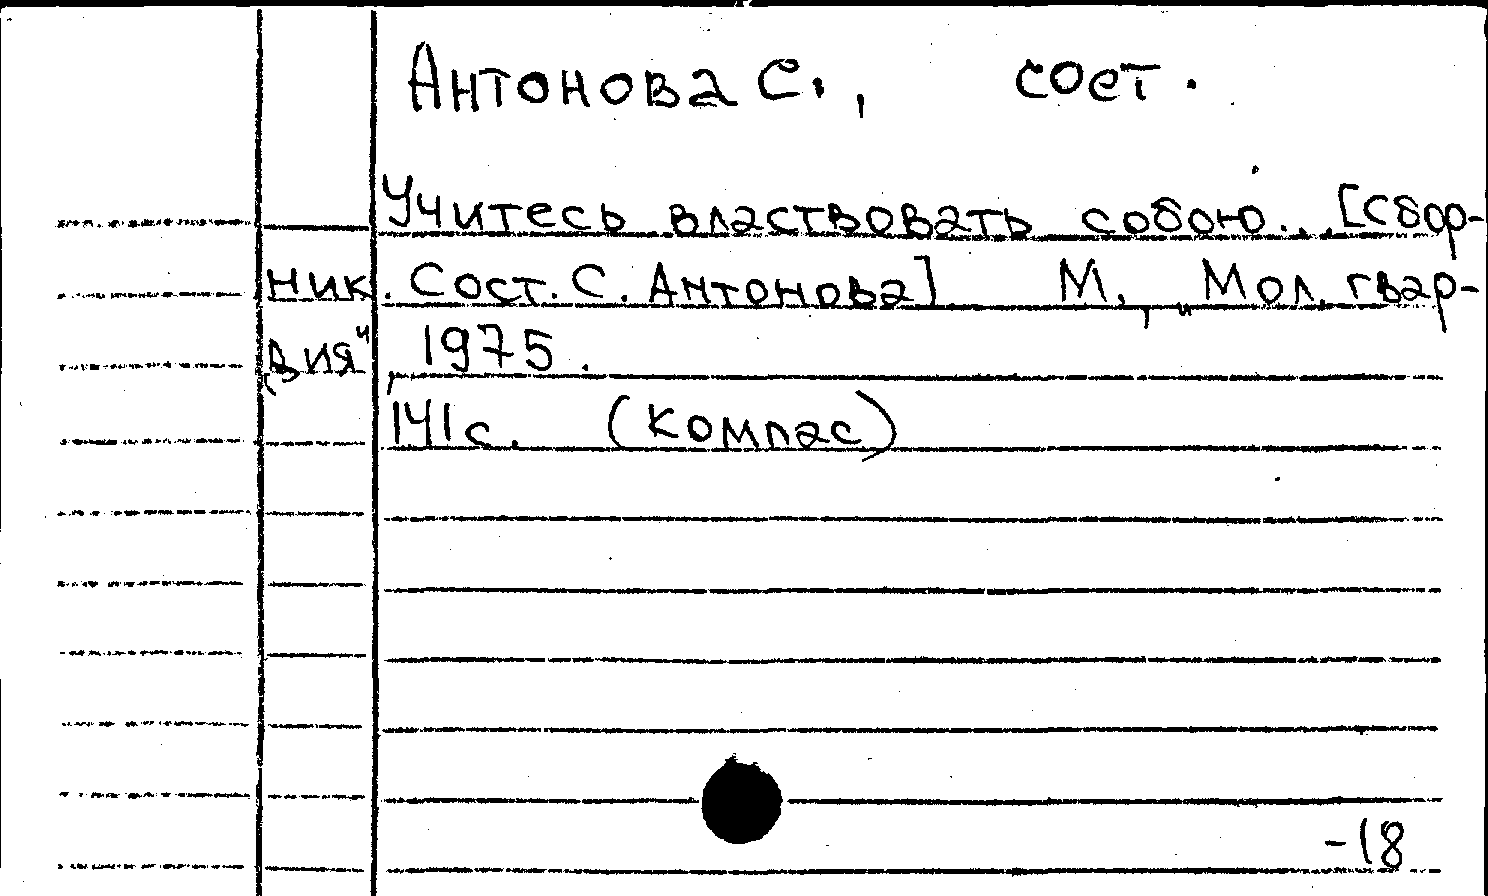 Антонова С., сост.
Учитесь властвовать собою... [Сбор-
ник. Сост. С. Антонова] М., „Мол. гвар-
дия", 1975.
141с. (Компас)
-18